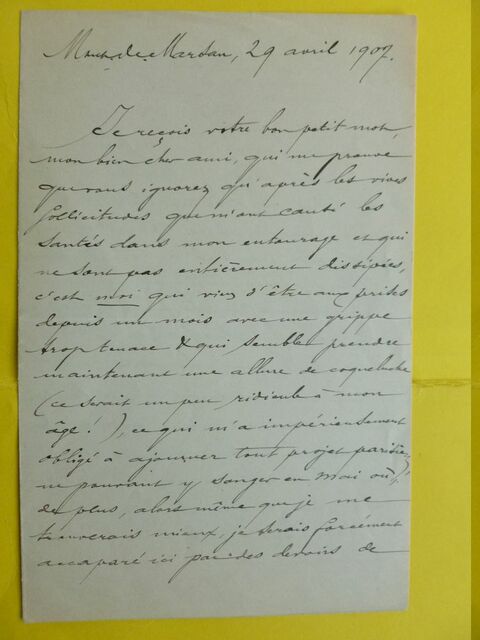 Mont-de-Marsan, 29 avril 1907.
Je reçois votre bon petit mot,
mon bien cher ami, qui me prouve
que vous ignorez qu'après les vives
sollicitudes que m'ont causé les
santés dans mon entourage et qui
ne sont pas entièrement dissipées,
c'est moi qui viens d'être aux prises
depuis un mois avec une grippe
trop tenace & qui semble prendre
maintenant une allure de coqueluche
(ce serait un peu ridicule à mon
âge!), ce qui m'a impérieusement
obligé à ajourner tout projet parisien,
ne pouvant y songer en mai où,
de plus, alors même que je me
trouverais mieux, je serais forcément
accaparé ici par des devoirs de